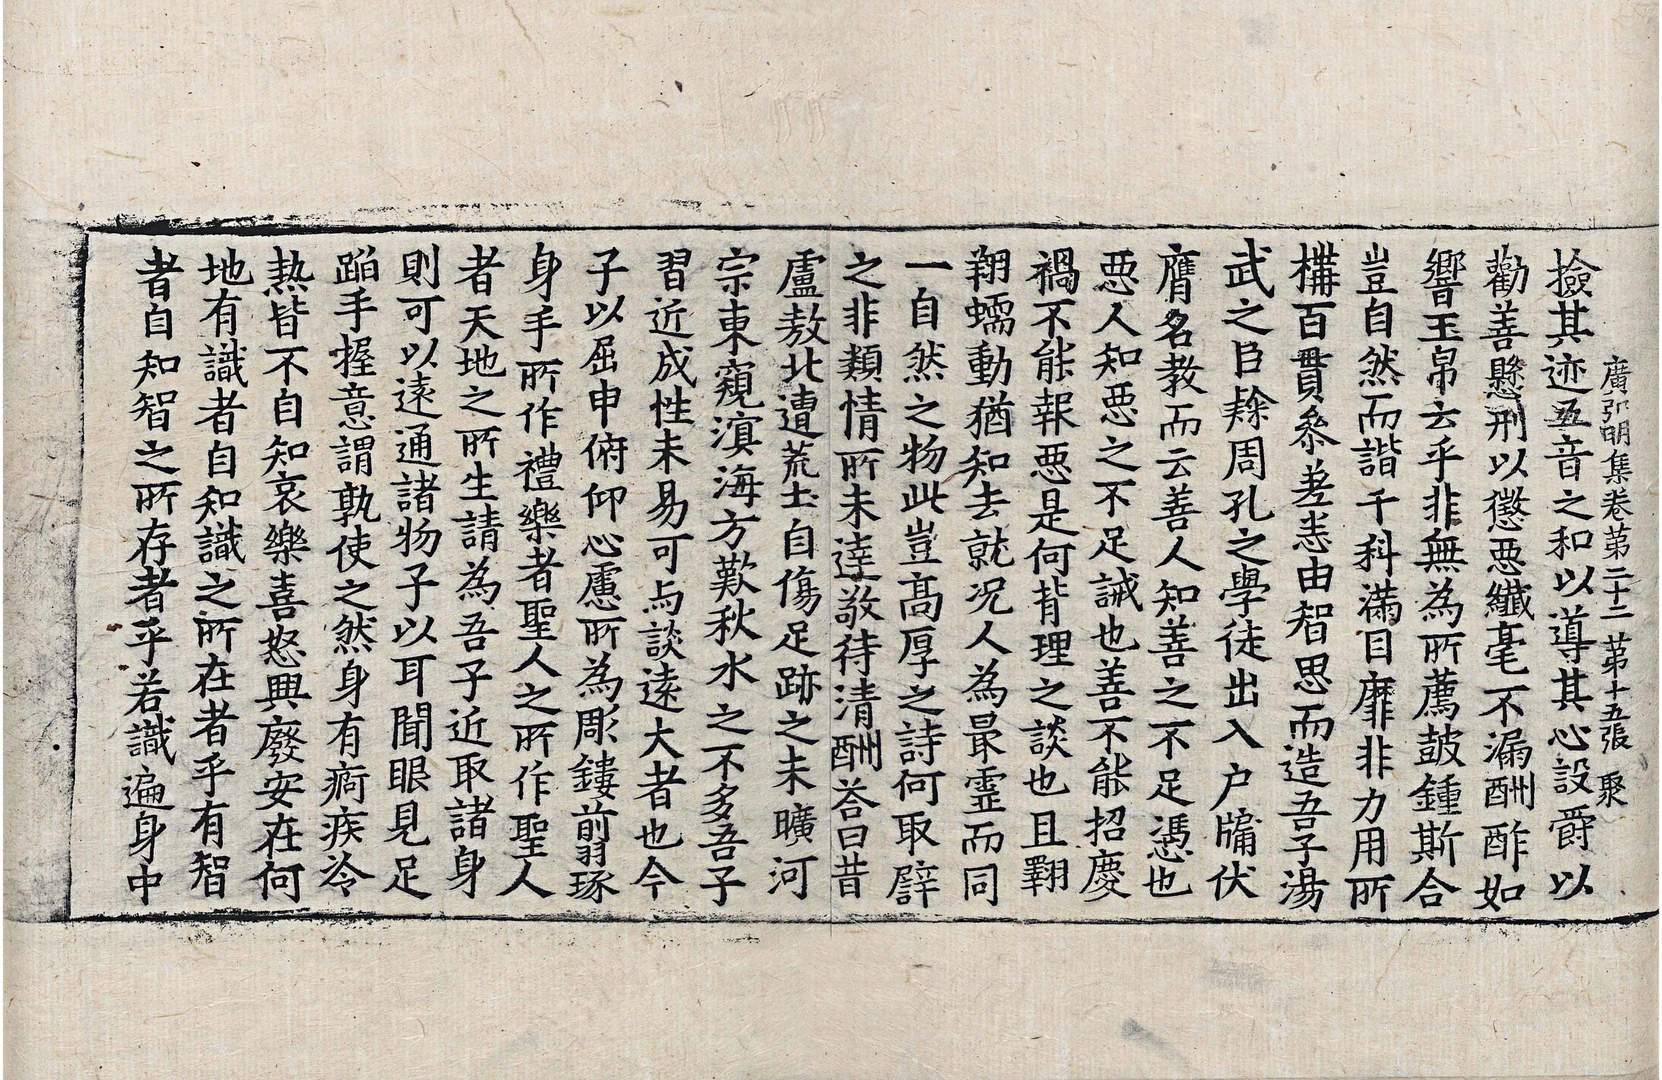 廣弘明集卷第二十二　第十五張　聚
撿其迹五音之和以導其心設爵以
勸善懸刑以懲惡纖毫不漏酬酢如
響玉帛云乎非無為所薦鼓鍾斯合
豈自然而諧千科滿目靡非力用所
構百貫叅差恙由智思而造吾子湯
武之臣隸周孔之學徒出入户牖伏
膺名教而云善人知善之不足憑也
惡人知惡之不足誡也善不能招慶
禍不能報惡是何背理之談也且翾
翔蠕動猶知去就况人為最靈而同
一自然之物此豈髙厚之詩何取譬
之非類情所未達敬待清酬荅曰昔
盧敖北遭荒圡自傷足跡之未曠河
宗東窺溟海方歎秋水之不多吾子
習近成性未易可与談遠大者也今
子以屈申俯仰心慮所為彫鏤剪琢
身手所作禮樂者聖人之所作聖人
者天地之所生請為吾子近取諸身
則可以遠通諸物子以耳聞眼見足
蹈手握意謂孰使之然身有痾疾冷
熱皆不自知哀樂喜怒興廢安在何
地有識者自知識之所在者乎有智
者自知智之所存者乎若識遍身中